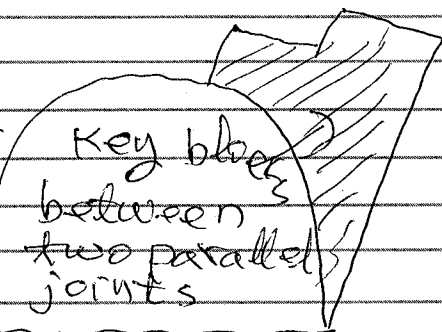 Key block
between
two parallel
joints